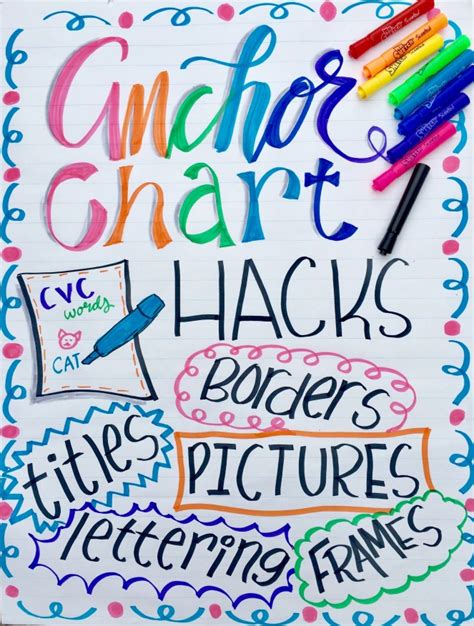 Anchor
Chart
HACKS
CVC
words
CAT
Borders
titles
PICTURES
lettering
FRAMES